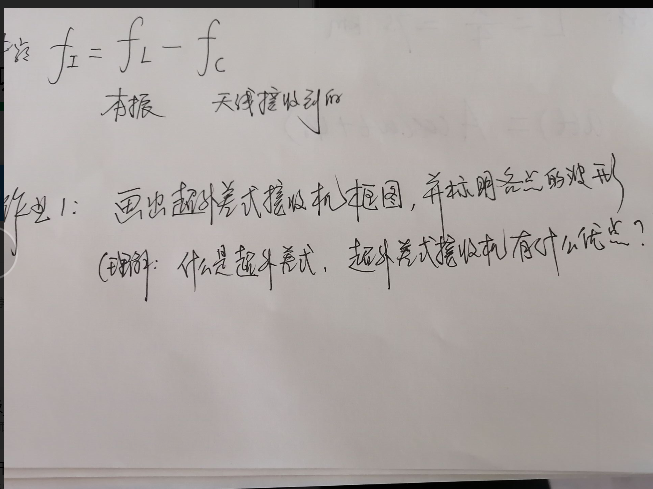 f_I = f_L - f_C
本振 天线接收到的
作业1: 画出超外差式接收机框图，并标明各点的波形
(理解: 什么是超外差式，超外差式接收机有什么优点?